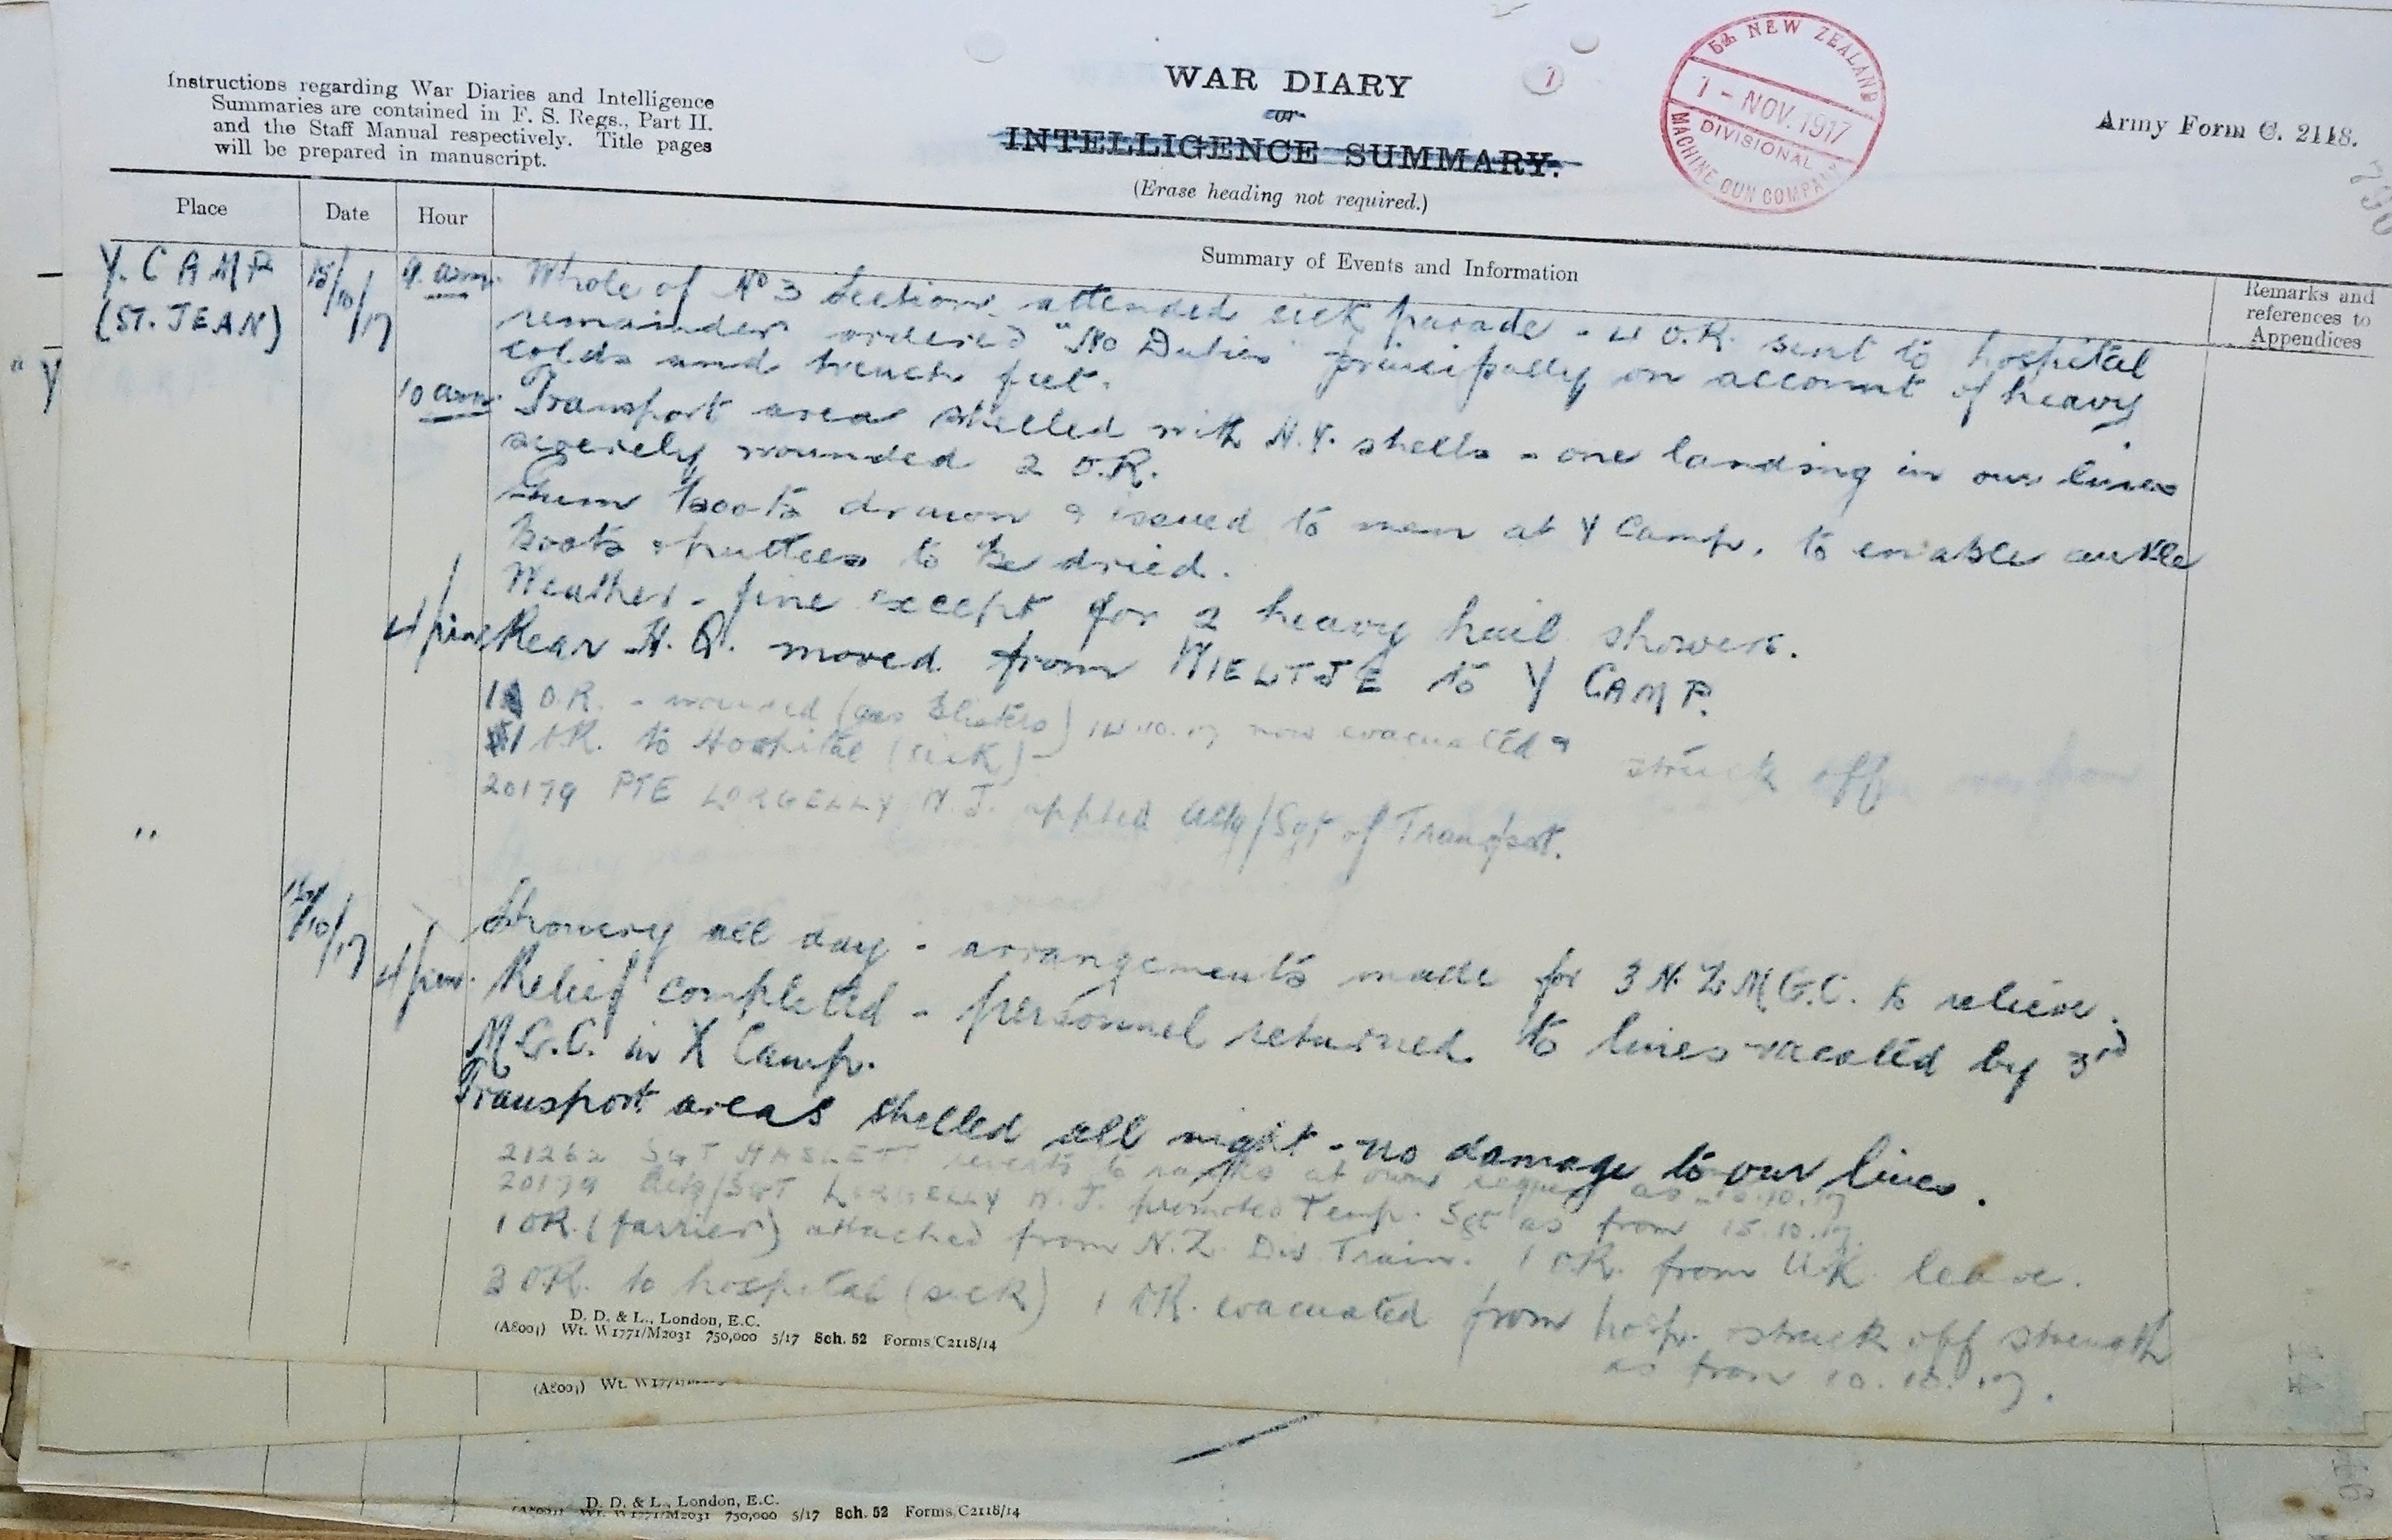 Instructions regarding War Diaries and Intelligence
Summaries are contained in F. S. Regs., Part II.
and the Staff Manual respectively. Title pages
will be prepared in manuscript.
WAR DIARY
or
INTELLIGENCE SUMMARY.
(Erase heading not required.)
5th NEW ZEALAND
1 - NOV. 1917
DIVISIONAL
MACHINE GUN COMPANY
Army Form C. 2118.
Place
Date
Hour
Summary of Events and Information
Remarks and
references to
Appendices
Y. CAMP
(ST. JEAN)
15/10/17
9. am.
Whole of No 3 Section attended sick parade - 4 O.R. sent to hospital
remainder ordered "No Duties" principally on account of heavy
colds and trench feet.
10 am.
Transport area shelled with H.V. shells - one landing in our lines
severely wounded 2 O.R.
Gum boots drawn & issued to men at Y Camp, to enable ankle
Boots & puttees to be dried.
Weather - fine except for 2 heavy hail showers.
4 pm
Rear H.Q. moved from WIELTJE to Y CAMP.
1 O.R. - wounded (gas blisters) 14.10.17 now evacuated & struck off
1 O.R. to Hospital (sick) -
20179 PTE LORGELLY N.J. appted Actg/Sgt of Transport.
"
16/10/17
Showery all day - arrangements made for 3 N.Z.M.G.C. to relieve.
4 pm.
Relief completed - personnel returned to lines vacated by 3rd
M.G.C. in X Camp.
Transport areas shelled all night - no damage to our lines.
21262 SGT HASLETT reverts to ranks at own request as 15.10.17
20179 Actg/SGT LORGELLY N.J. promoted Temp. Sgt as from 15.10.17.
1 OR. (farrier) attached from N.Z. Div. Train. 1 OR. from U.K. leave.
3 O.R. to hospital (sick) 1 OR. evacuated from hosp. struck off strength
as from 10.10.17.
D. D. & L., London, E.C.
(A8001) Wt. W1771/M2031 750,000 5/17 Sch. 52 Forms/C2118/14
(A8001) Wt.
D. D. & L., London, E.C.
Wt. W1771/M2031 750,000 5/17 Sch. 52 Forms/C2118/14